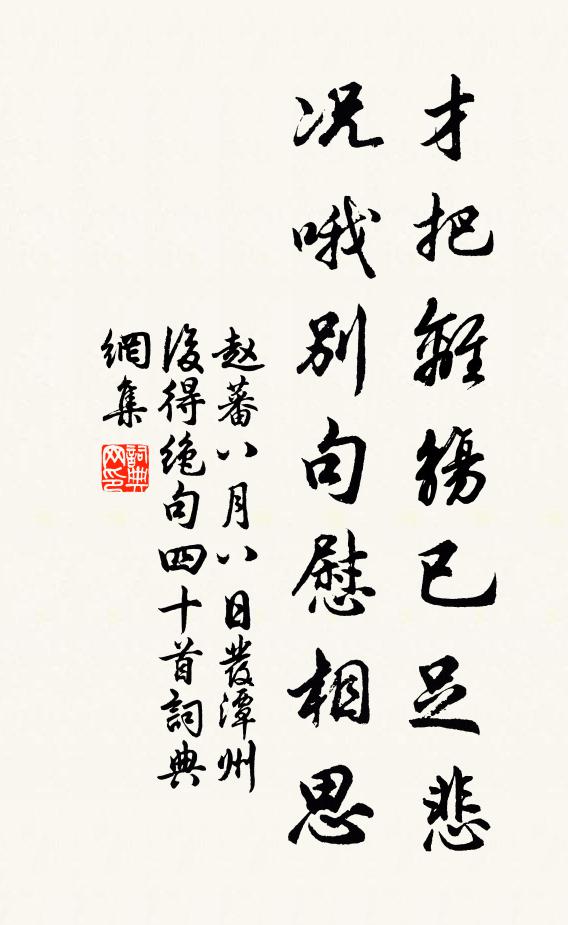 才把離觴已足悲
况哦別句慰相思
赵蕃八月八日發潭州
後得绝句四十首詞典
網集
詞典
网印